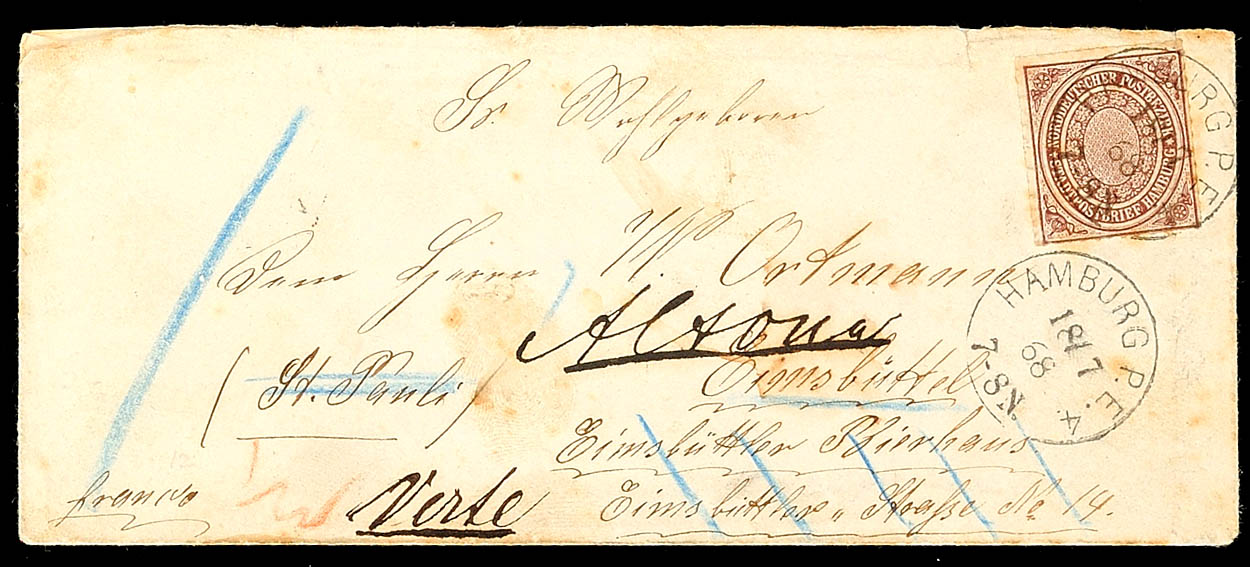 Sr. Wohlgeboren
Dem Herrn W. Ortmann
Altona
(St. Pauli)
Eimsbüttel
Eimsbüttler Bierhaus
Eimsbüttler Straße No 14.
franco
Verte
NORDDEUTSCHER POSTBEZIRK
STADTPOSTBRIEF HAMBURG
BURG P. E.
68
HAMBURG P.E. 4.
18 7
68
7-8 N